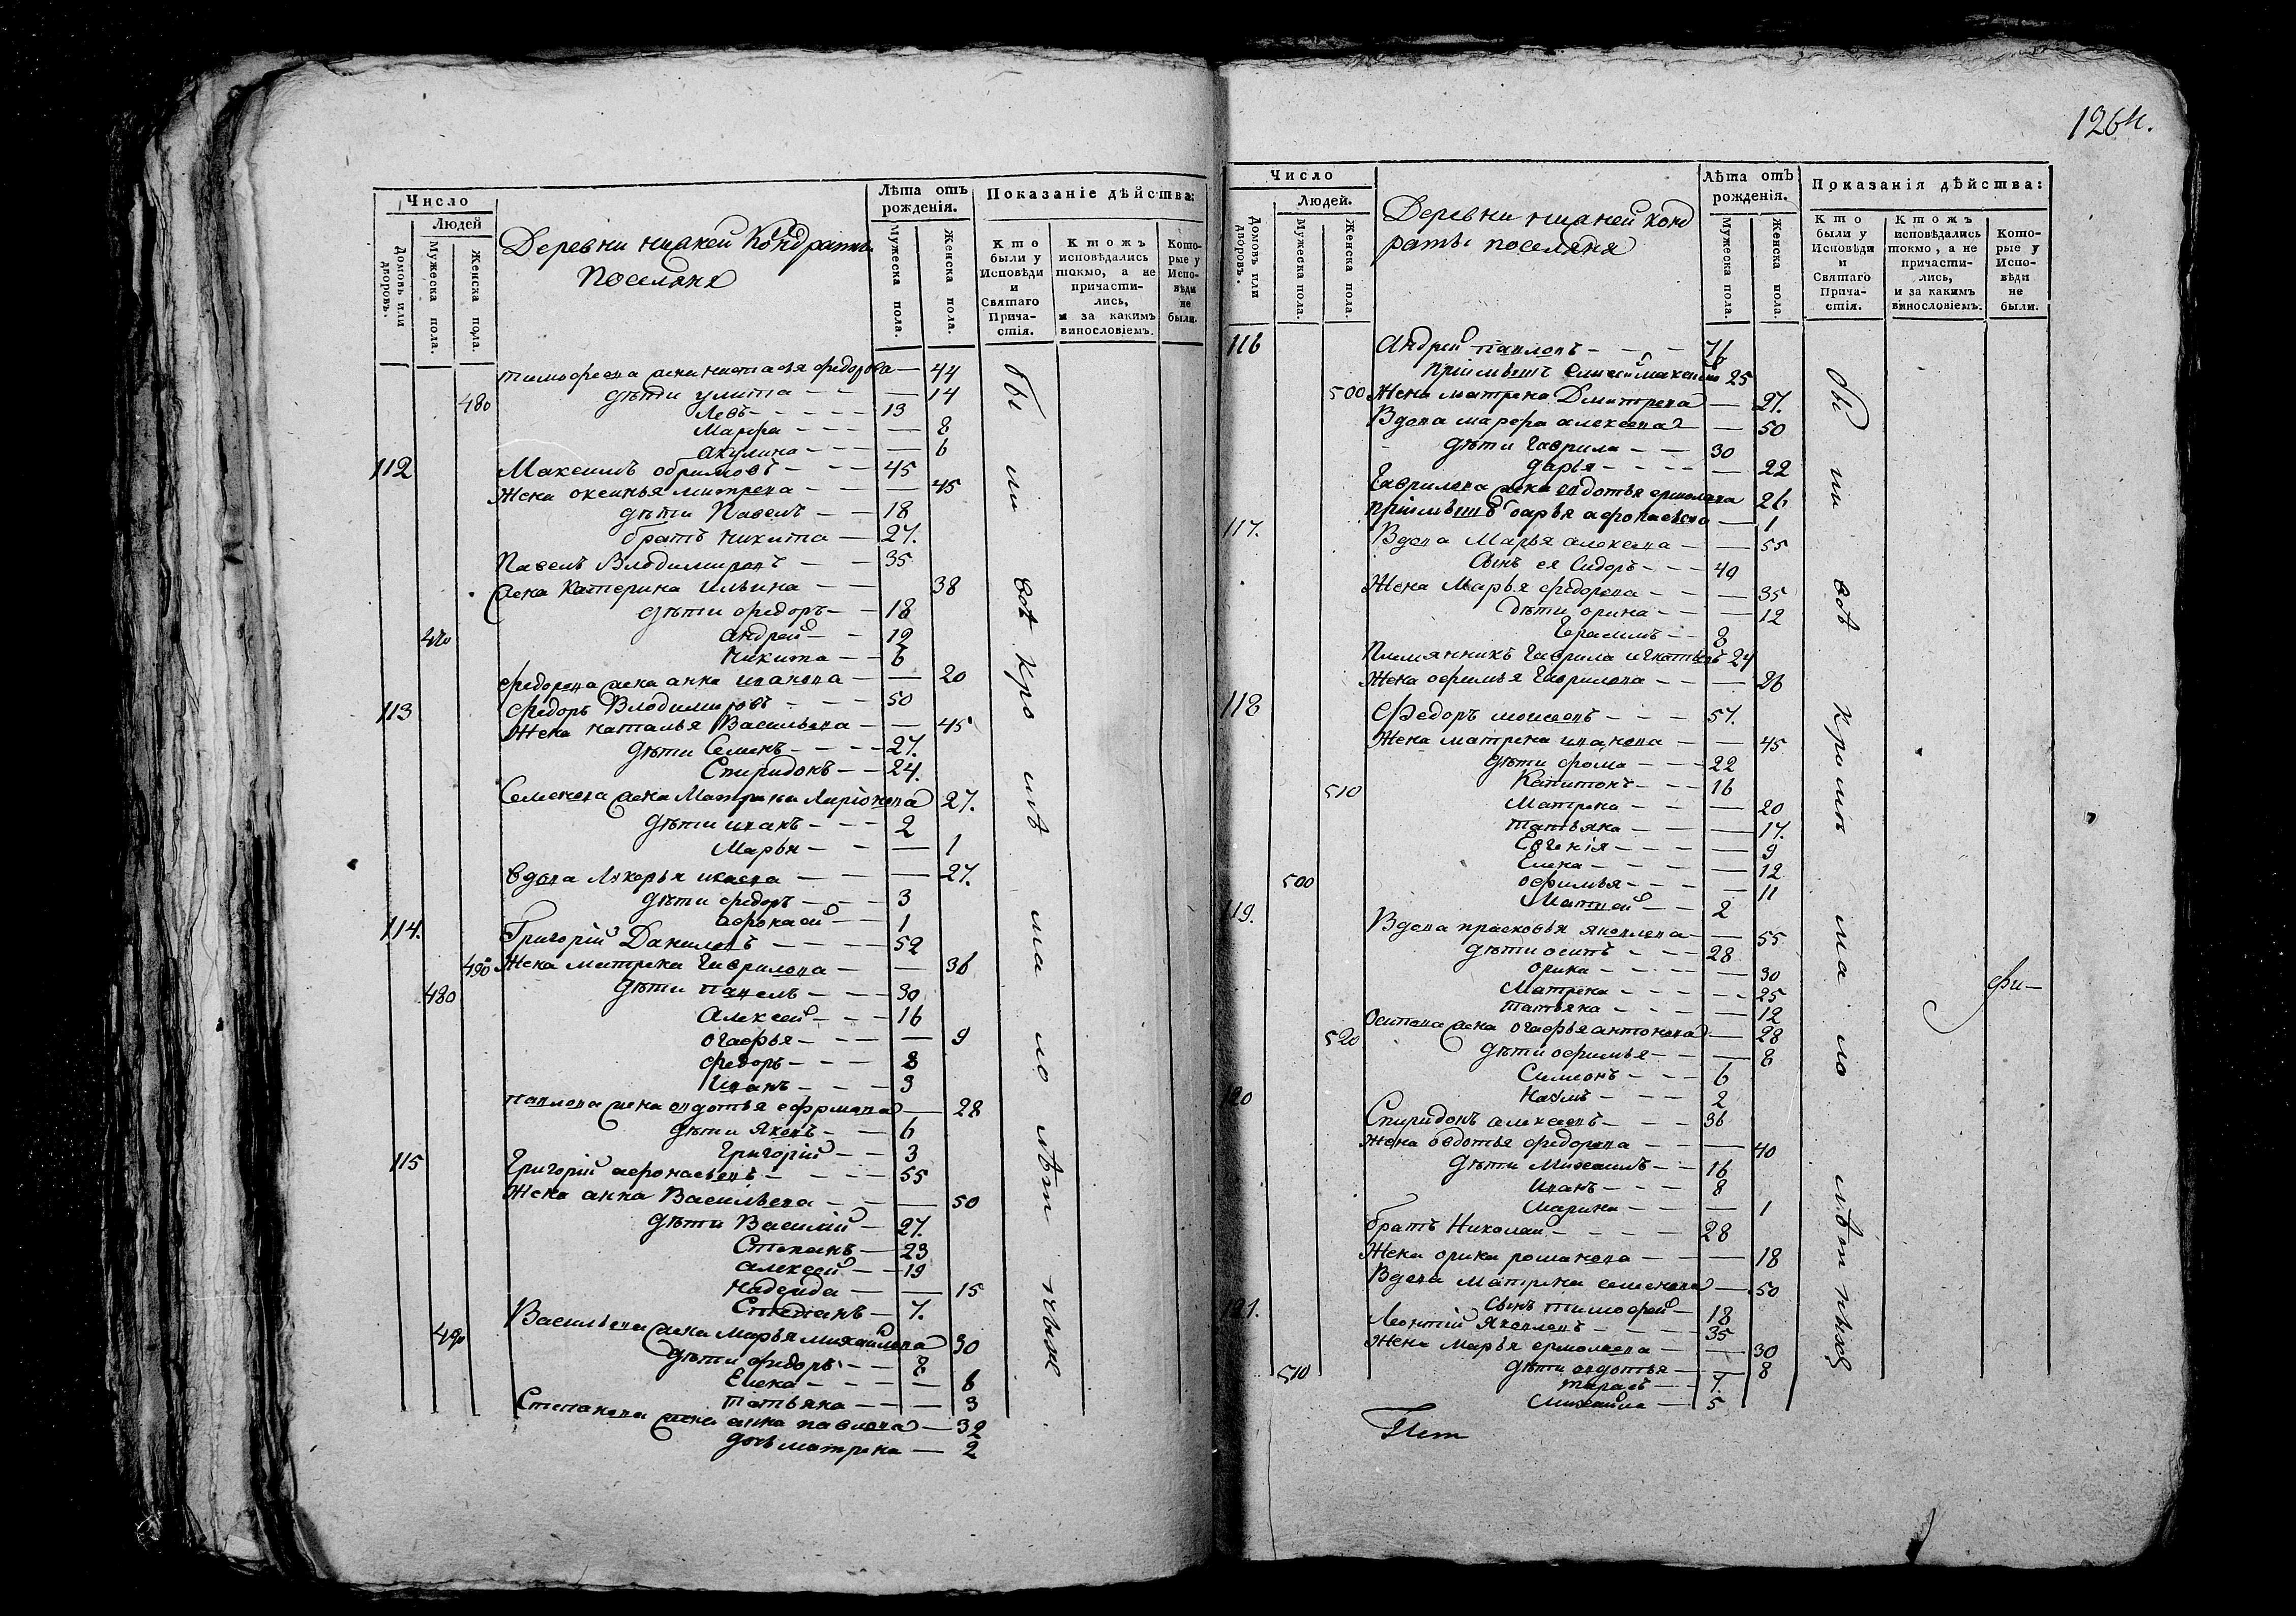 Число
Людей
Домовъ или дворовъ.
Мужеска пола.
Женска пола.
Деревни нижней Кондраты
поселяня
Лѣта отъ рожденія.
Мужеска пола.
Женска пола.
Показаніе дѣйства:
Кто были у Исповѣди и Святаго Причастія.
Ктожъ исповѣдались токмо, а не причастились, и за какимъ винословіемъ.
Которые у Исповѣди не были.
тимофеева жена настасья федорова — 44
480 дѣти улита — 14
Левъ — 13
Марфа — 8
акулина — 6
112 Максимъ
Жена оксинья митрева — 45
дѣти Павелъ — 18
братъ никита — 27.
Павелъ Владимировъ — 35
жена Катерина Ильина — 38
дѣти федоръ — 18
андрей — 12
Никита — 6
федорова жена анна иванова — 20
113 Федоръ Владимировъ — 50
Жена наталья Васильева — 45
дѣти Семенъ — 27.
Спиридонъ — 24.
Семенова жена Матрена Ларіонова 27.
дѣти иванъ — 2
Марья — 1
вдова Лукерья — 27.
дѣти федоръ — 3
афонасей — 1
114. Григорій Даниловъ — 52
490 Жена матрена Гаврилова — 36
480 дѣти павелъ — 30
Алексей — 16
огафья — 9
федоръ — 8
Иванъ — 3
павлова жена овдотья — 28
дѣти Яковъ — 6
Григорій — 3
115 Григорій афонасьевъ — 55
Жена анна Васильева — 50
дѣти Василій — 27.
Степанъ — 23
алексей — 19
надежда — 15
Степанъ — 7.
490 Васильева жена Марья михайлова 30
дѣти федоръ — 8
Елена — 6
татьяна — 3
Степанова жена анна павлова — 32
дочь матрена — 2
бы ли всѣ кро мѣ ма ло лѣт ныхъ
126
Число
Людей.
Домовъ или дворовъ.
Мужеска пола.
Женска пола.
Деревни нижней Конд
раты поселяня
Лѣта отъ рожденія.
Мужеска пола.
Женска пола.
Показанія дѣйства:
Кто были у Исповѣди и Святаго Причастія.
Ктожъ исповѣдались токмо, а не причастились, и за какимъ винословіемъ.
Которые у Исповѣди не были.
116 Андрей павловъ — 76
пріимышъ 25
500 Жена матрена Дмитрева — 27.
Вдова марфа алексева — 50
дѣти Гаврила — 30
дарья — 22
Гаврилова жена овдотья ермолаева 26
пріимышъ дарья афонасьева — 1
117. Вдова Марья алексева — 55
Сынъ ея Сидоръ — 40
Жена Марья федорова — 35
дѣти орина — 12
Герасимъ — 8
Племянникъ Гаврила игнатьевъ 24
Жена офимья Гаврилова — 26
118 Федоръ моисеевъ — 57.
Жена матрена иванова — 45
дѣти фома — 22
510 Капитонъ — 16
Матрена — 20
татьяна — 17.
Евгенія — 9
Елена — 12
500 офимья — 11
Матвей — 2
119. Вдова прасковья яковлева — 55
дѣти осипъ — 28
орина — 30
Матрена — 25
татьяна — 12
520 Осипова жена огафья антонова — 28
дѣти офимья — 8
Симионъ — 6
Наумъ — 2
120 Спиридонъ алексеевъ — 36
Жена овдотья федорова — 40
дѣти Михаилъ — 16
Иванъ — 8
Марина — 1
братъ Николай — 28
Жена орина романова — 18
Вдова Матрена семенова — 50
сынъ тимофей — 18
121. Леонтій Яковлевъ — 35
Жена Марья ермолаева — 30
510 дѣти овдотья — 8
тарасъ — 7.
Михаила — 5
бы ли всѣ кромѣ ма ло лѣт ныхъ